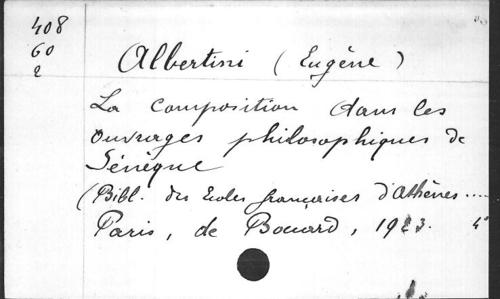 408
60
2
Albertini (Eugène)
La composition dans les
ouvrages philosophiques de
Sénèque
(Bibl. des Ecoles françaises d'Athènes....
Paris, de Boccard, 1923. 4°